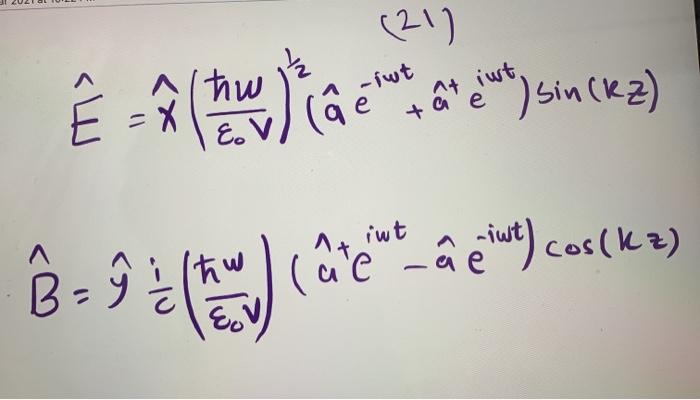 (21)
Ê = x̂ (ħw/ε₀V)^½ (â e^-iwt + â^+ e^iwt) sin(kz)
B̂ = ŷ i/c (ħw/ε₀V) (â^+ e^iwt - â e^-iwt) cos(kz)